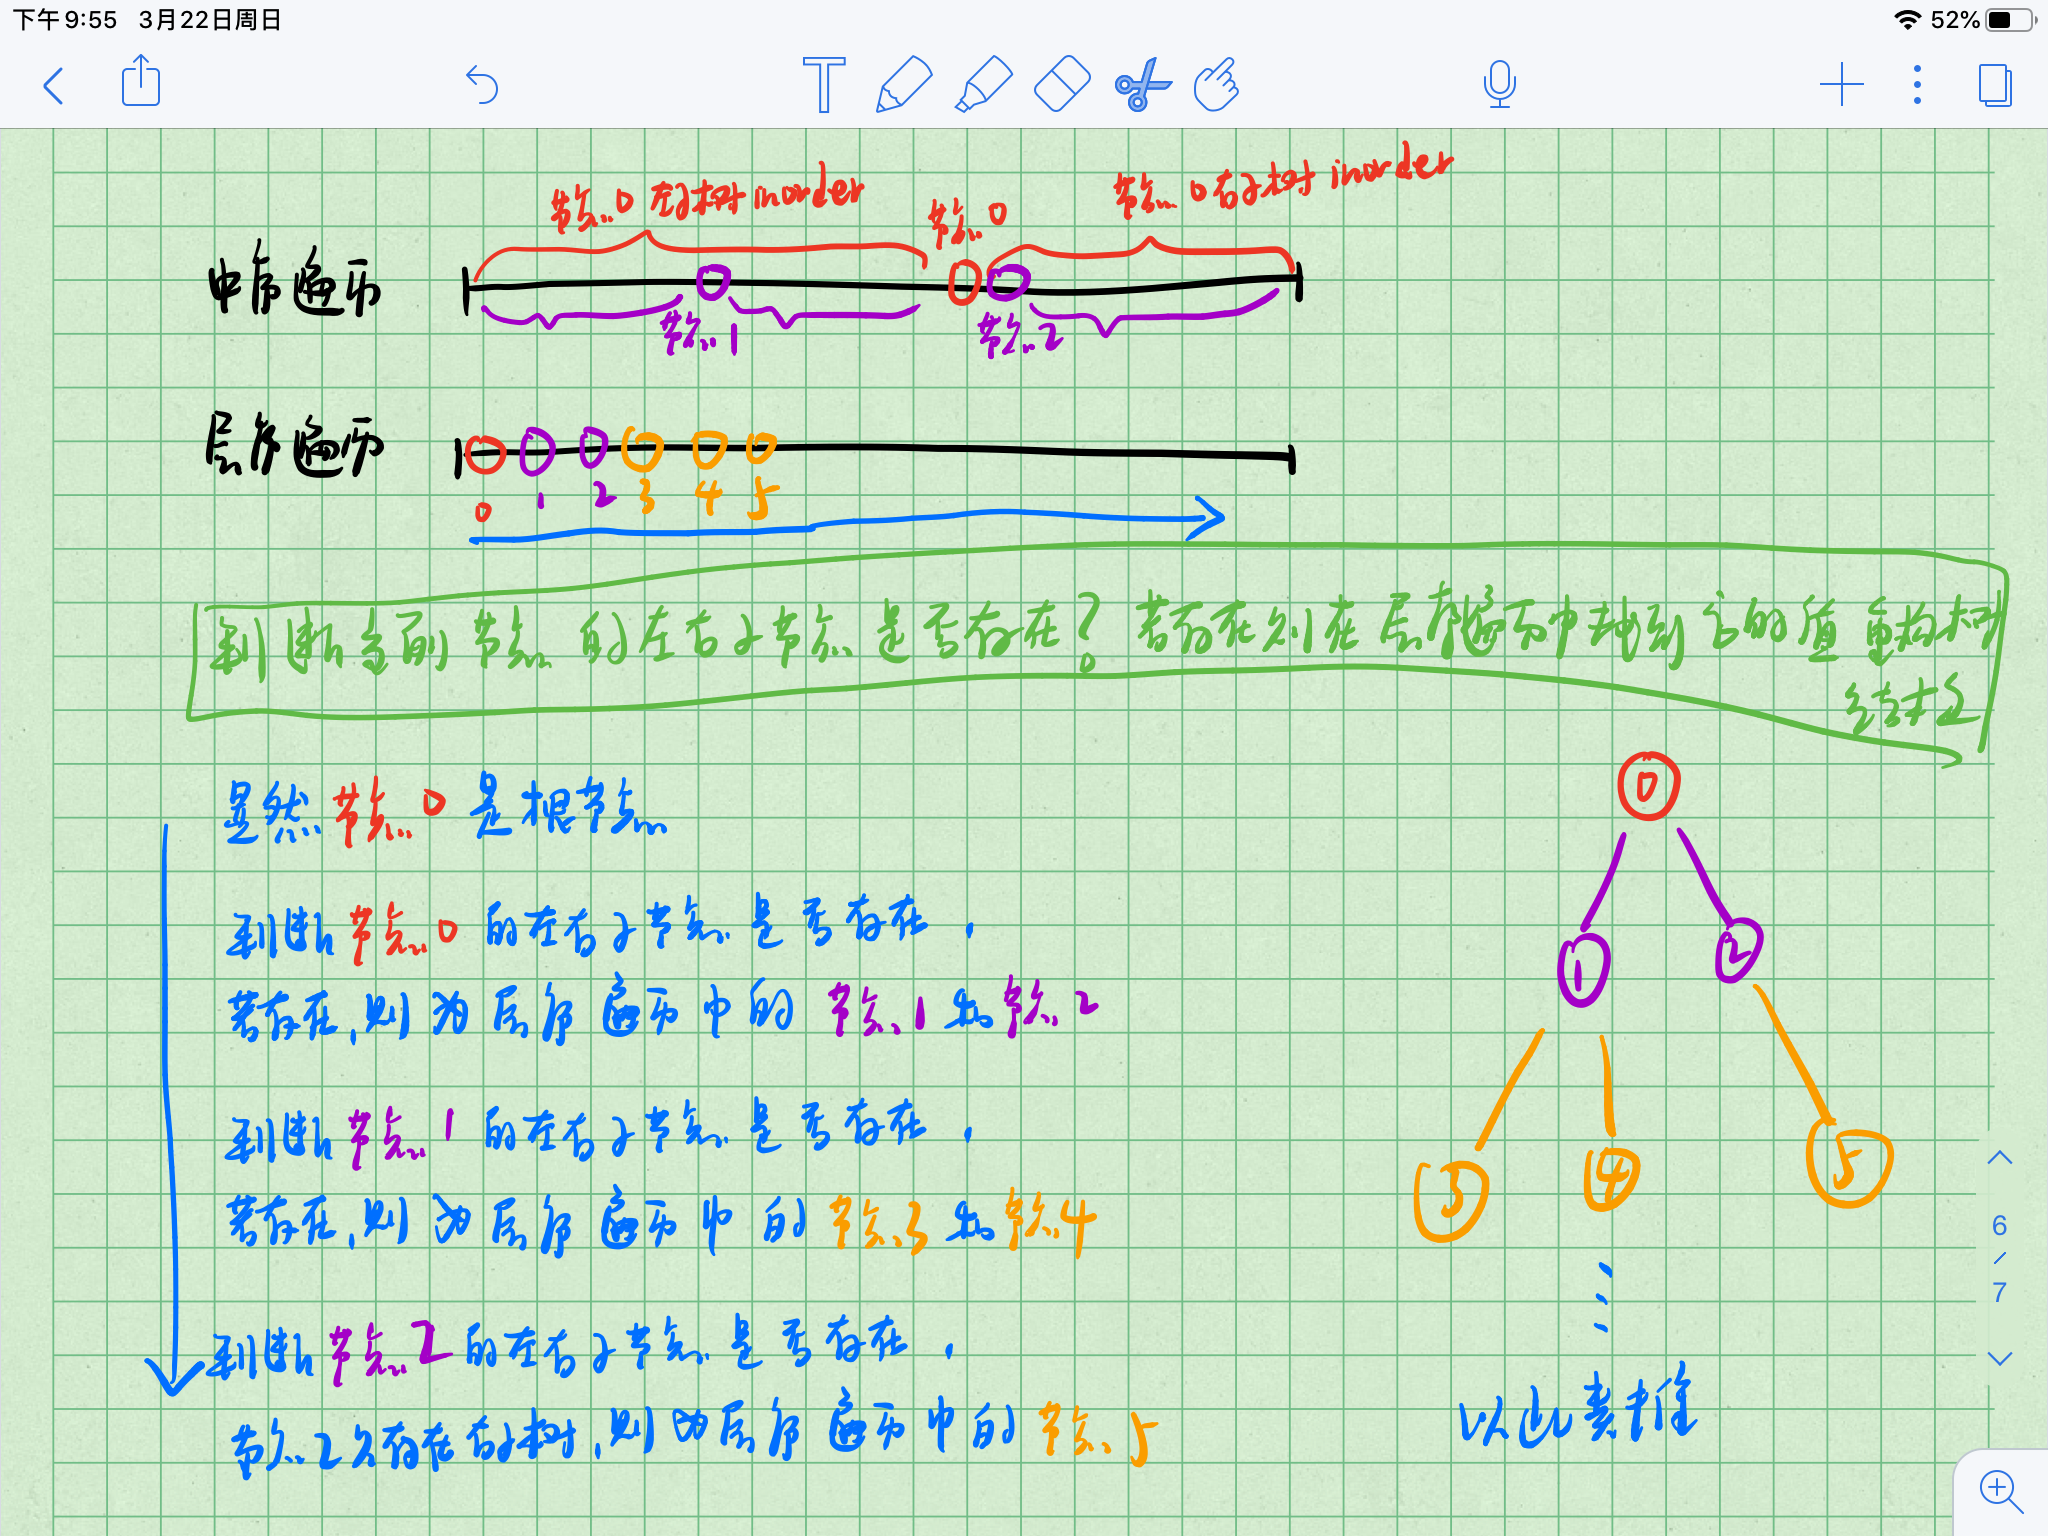 下午9:55 3月22日周日 52%
节点0左子树inorder 节点0 节点0右子树inorder
中序遍历
节点1 节点2
层序遍历
0 1 2 3 4 5
判断当前节点的左右子节点是否存在？若存在则在层序遍历中找到它的值重构树
结构
显然节点0是根节点
判断节点0的左右子节点是否存在，
若存在，则为层序遍历中的节点1和节点2
判断节点1的左右子节点是否存在，
若存在，则为层序遍历中的节点3和节点4
判断节点2的左右子节点是否存在，
节点2只存在右子树，则为层序遍历中的节点5
0
1 2
3 4 5
以此类推
6
/
7